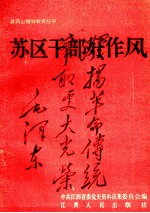 井冈山精神教育丛书
苏区干部好作风
发扬革命传统
争取更大光荣
毛泽东
中共江西省委党史资料征集委员会编
江西人民出版社